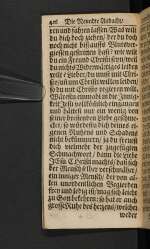 426 Die Neundte Andacht/
ren und fahren lassen? Was wilt
du dich doch ziehen/ der du doch
noch nicht biß auffs Blutver-
giessen gestritten hast? wie wilt
du ein Freund Christi seyn/ weñ
du nichts Widerwärtiges leiden
wilt? Lieber/ du must mit Christo
für und um Christi willen leiden/
so du mit Christo regieren wilt.
Wärestu einmal in die
keit JEsu vollkömlich eingangen
und hättest nur ein wenig von
seiner brennenden Liebe geschme-
cket/ so würdestu dich deines ei-
genen Nutzens und Schadens
nicht bekümmern/ ja du freuest
dich vielmehr der zugefügten
Schmach dann die Liebe
JEsu Christi machet/ daß sich
der Mensch selber verschmähet/
ein inniger Mensch/ der von al-
len unordentlichen Begierden
frey und ledig ist/ mag sich leicht
zu Gott bekehren/ so hat er auch
grosse Ruhe
weder